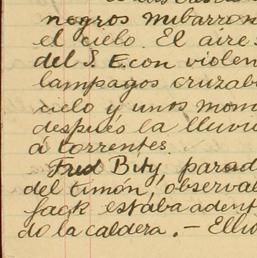 negros nubarron
el cielo. El aire
del S. E. con violen
lampagos cruzab
cielo y unos mom
después la lluvi
a torrentes.
Fred Bity, parad
del timón, observa
Jack estaba adent
do la caldera. — Ell